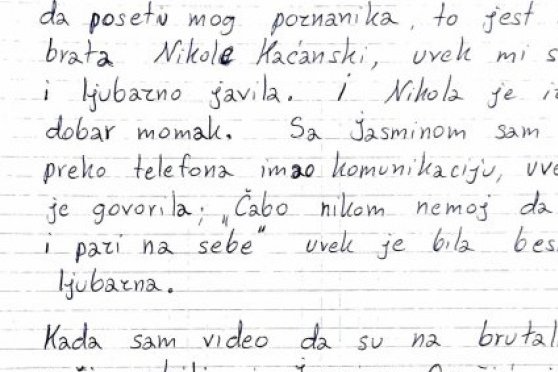 da posetu mog poznanika, to jest
brata Nikole Kaćanski, uvek mi s
i ljubazno javila. i Nikola je iz
dobar momak. Sa Jasminom sam
preko telefona imao komunikaciju, uve
je govorila; „Čabo nikom nemoj da
i pazi na sebe" uvek je bila bes
ljubazna.
Kada sam video da su na brutal